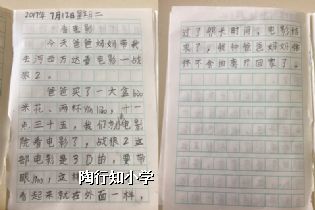 2017年7月12日 星期二
看电影
今天爸爸妈妈带我
去河西万达看电影一战
狼2。
爸爸买了一大盒bào
米花、两杯yǐn liào，十一
点三十五，我们进电影
院看电影了，战狼2这
部电影是3D的，要带
眼jìng，这样
看起来就在外面一样，
过了很长时间，电影结
束了，我和爸爸妈妈依依
不舍回家了。
陶行知小学